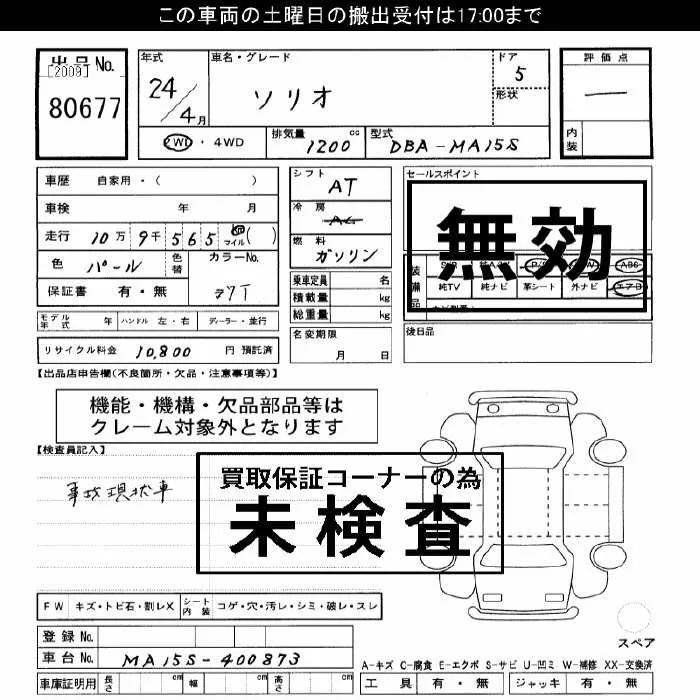 この車両の土曜日の搬出受付は17:00まで
出品No.
[2009]
80677
年式
24/4月
車名・グレード
ソリオ
ドア
5
形状
評価点
—
内装
2WD ・ 4WD
排気量
1200 cc
型式
DBA-MA15S
車歴 自家用・( )
車検 年 月
走行 10万 9千 565 マイル( )
色 パール
色替
カラーNo.
保証書 有・無
シフト
AT
冷房
AC
燃料
ガソリン
乗車定員 名
積載量 kg
総重量 kg
セールスポイント
無効
装備品
純TV 純ナビ 革シート 外ナビ エアB
ABS
モデル年式 年 ハンドル 左・右 ディーラー・並行
名変期限
月 日
後日品
リサイクル料金 10,800 円 預託済
【出品店申告欄(不良箇所・欠品・注意事項等)】
機能・機構・欠品部品等は
クレーム対象外となります
【検査員記入】
事故現状車
買取保証コーナーの為
未検査
FW キズ・トビ石・割レX シート内装 コゲ・穴・汚レ・シミ・破レ・スレ
スペア
登録No.
車台No. MA15S-400873
A-キズ C-腐食 E-エクボ S-サビ U-凹ミ W-補修 XX-交換済
車庫証明用 長さ cm 幅 cm 高さ cm
工具 有・無 ジャッキ 有・無